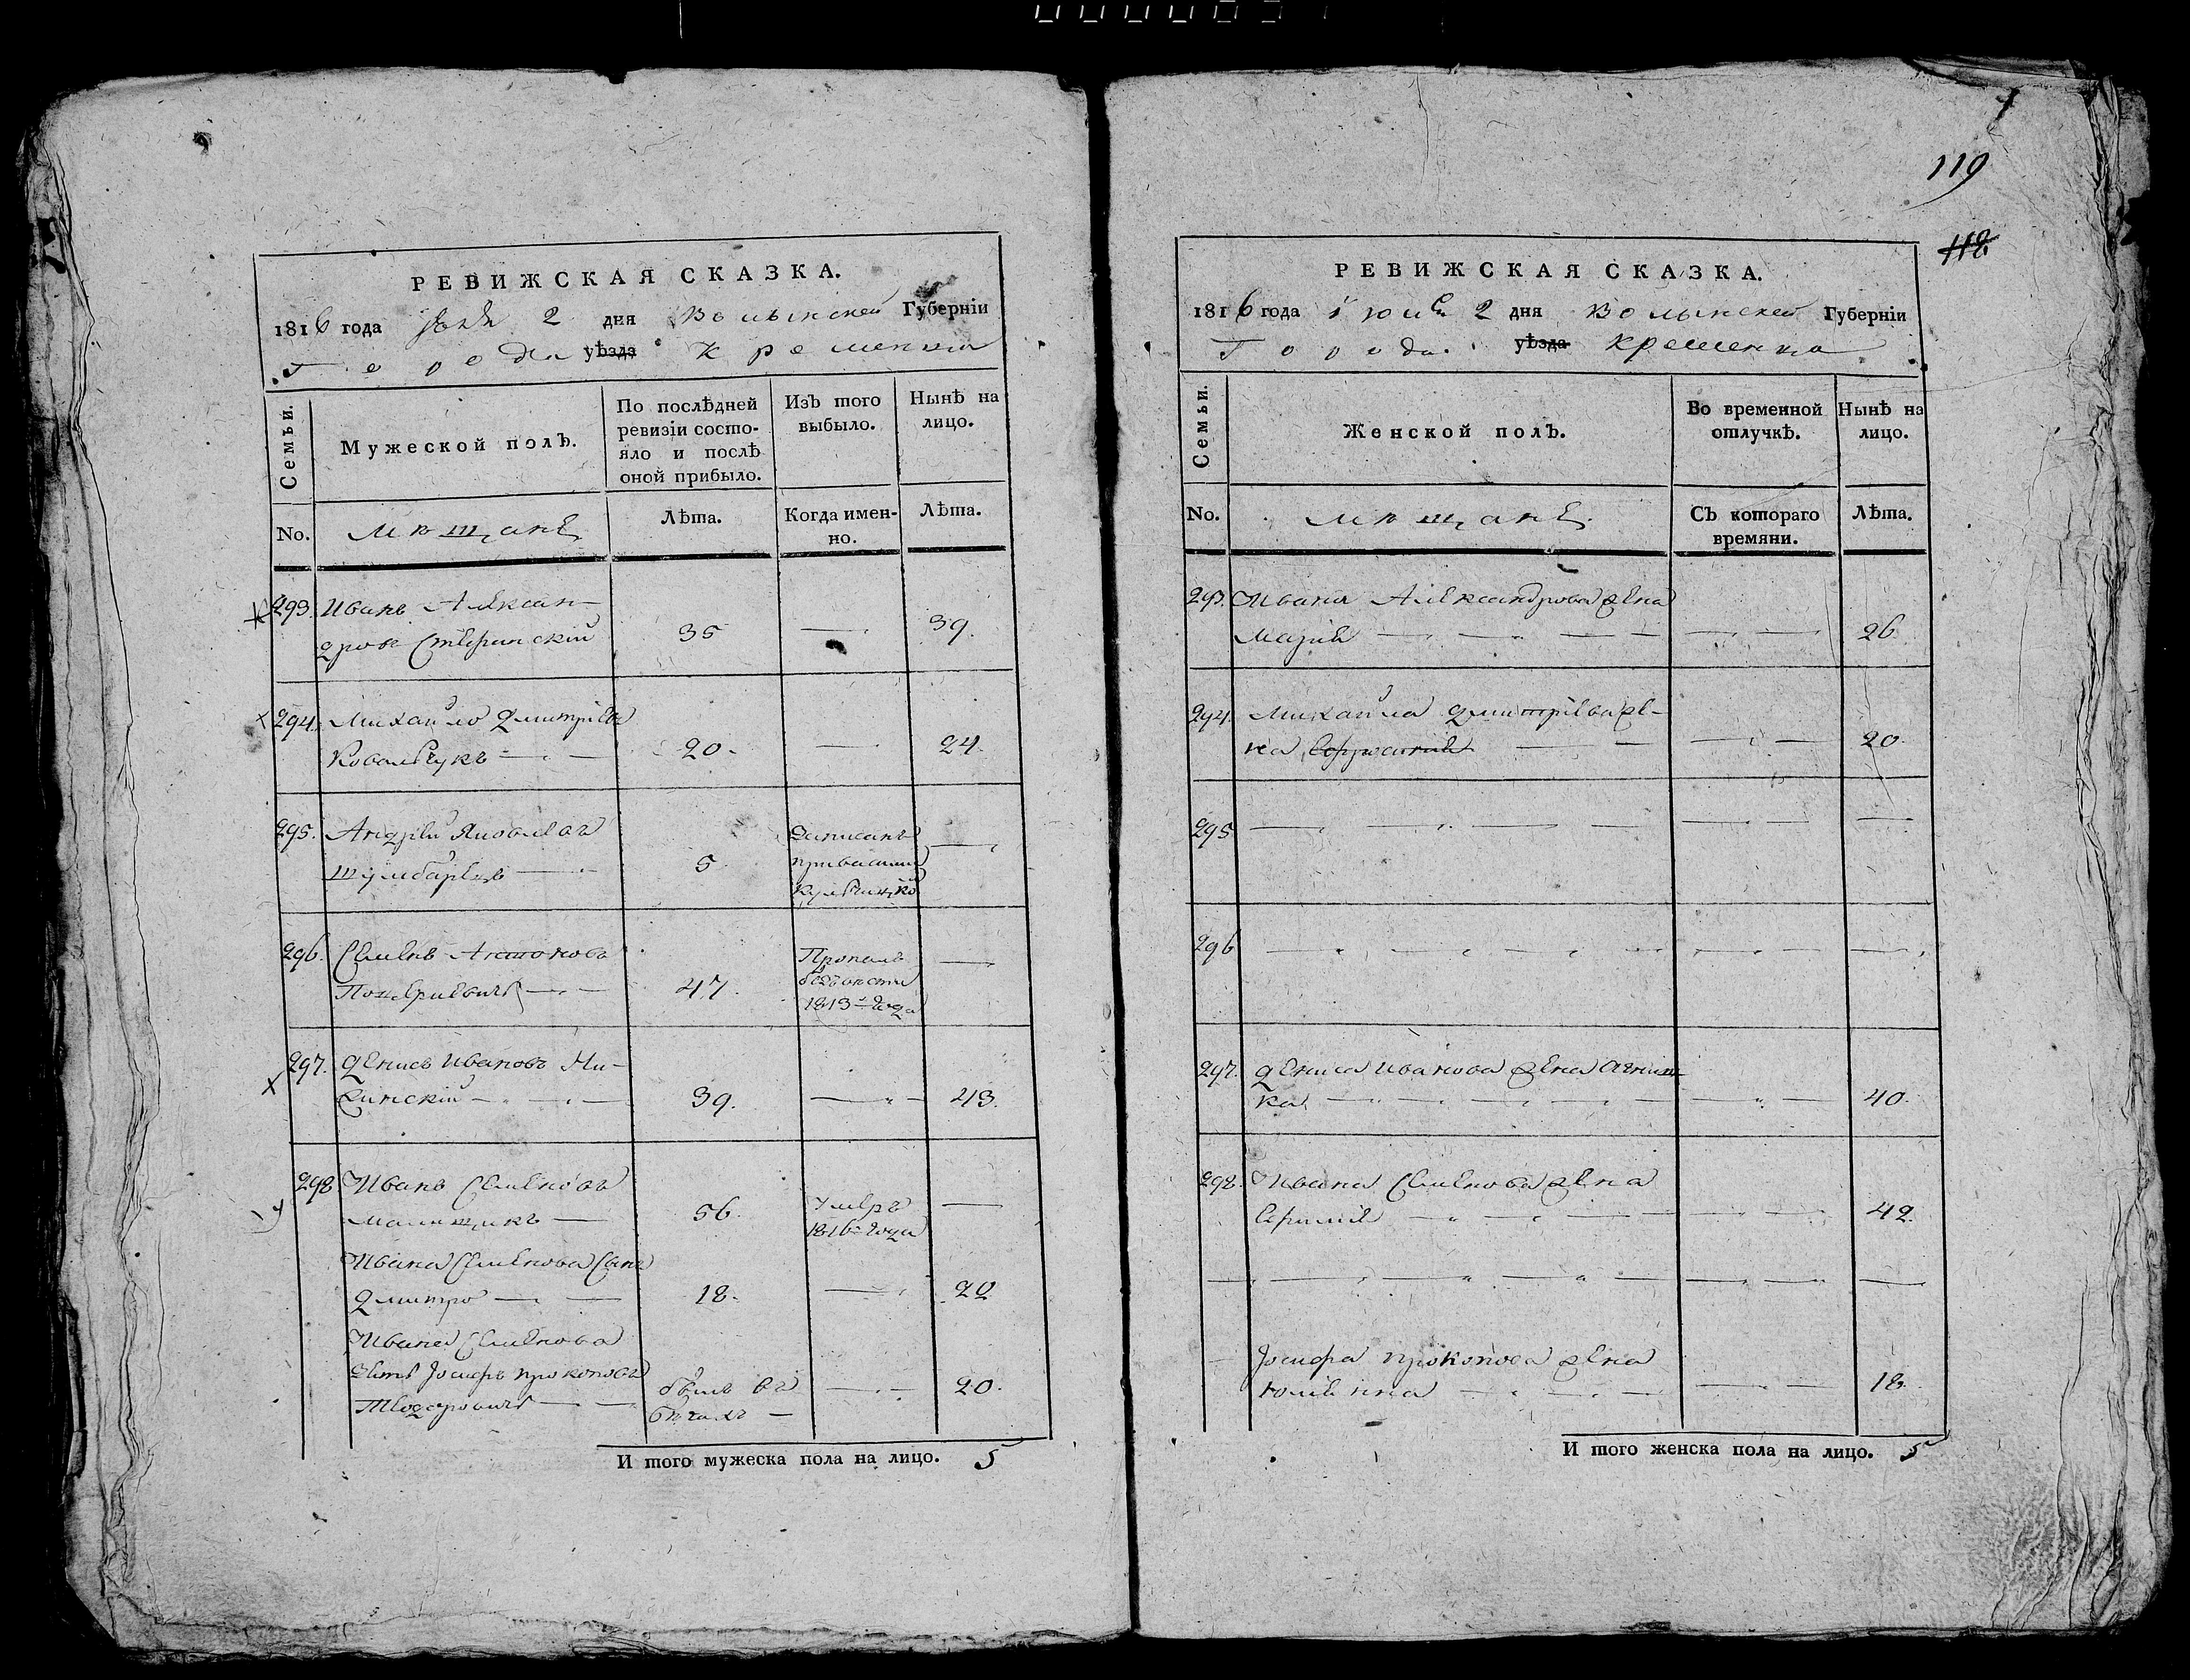 119
118
РЕВИЖСКАЯ СКАЗКА.
1816 года 2 дня Волынской Губерніи
Города уѣзда Кременца
Семьи.
Мужеской полъ.
По послѣдней
ревизіи состо-
яло и послѣ
оной прибыло.
Изъ того
выбыло.
Нынѣ на
лицо.
No.
мѣщане
Лѣта.
Когда имен-
но.
Лѣта.
293. Иванъ Алексан-
дровъ 35 — 39.
294. Михайло Дмитріевъ
Ковальчукъ — 20. — 24.
295. Андрей Яковлевъ
5. Записанъ —
296. Семенъ Антоновъ
47. Пропалъ
безъ вести
1813 года —
297. Денисъ Ивановъ Ни-
зинскій — 39. — 43.
298. Иванъ Семеновъ
56. Умеръ
1816 года —
Ивана Семенова сынъ
Дмитро — 18. — 20
Ивана Семенова
зять Іосифъ Прокоповъ
былъ въ
бегахъ — — 20.
И того мужеска пола на лицо. 5
РЕВИЖСКАЯ СКАЗКА.
1816 года 2 дня Волынской Губерніи
Города уѣзда Кременца
Семьи.
Женской полъ.
Во временной
отлучкѣ.
Нынѣ на
лицо.
No.
мѣщане
Съ котораго
времяни.
Лѣта.
293. Ивана Александрова жена
Марія — — 26.
294. Михайла Дмитріева же-
на — — 20.
295 — — —
296 — — —
297. Дениса Иванова жена Агниш-
ка — — 40.
298. Ивана Семенова жена
— — 42.
— — —
Іосифа Прокопова жена
— — 18.
И того женска пола на лицо. 5